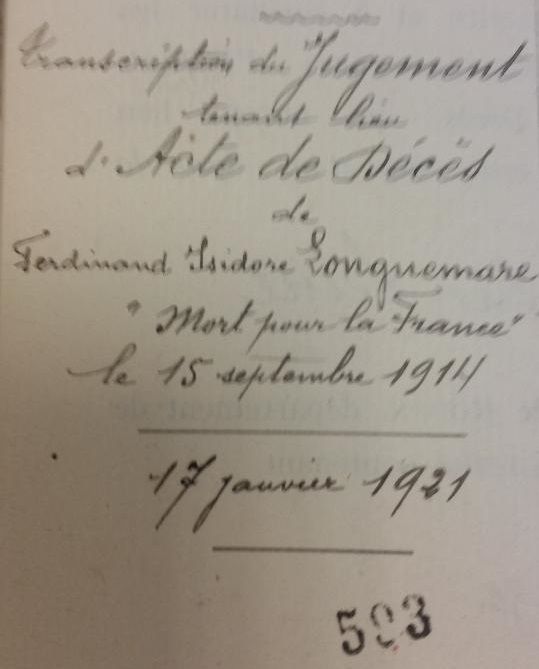 Transcription du Jugement
tenant lieu
d'Acte de Décès
de
Ferdinand Isidore Longuemare
"Mort pour la France"
le 15 septembre 1914
17 janvier 1921
593